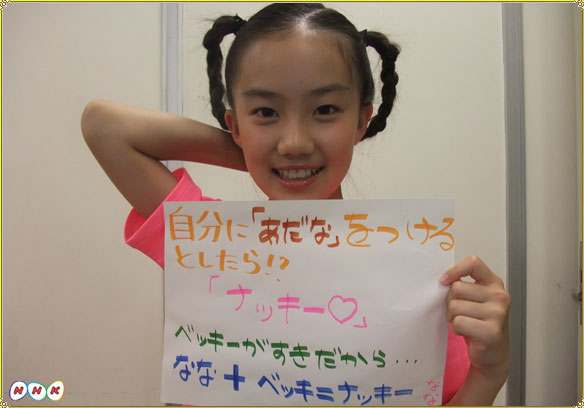 自分に「あだな」をつける
としたら!?
「ナッキー♡」
ベッキーがすきだから…
なな+ベッキ=ナッキー
なな
NHK